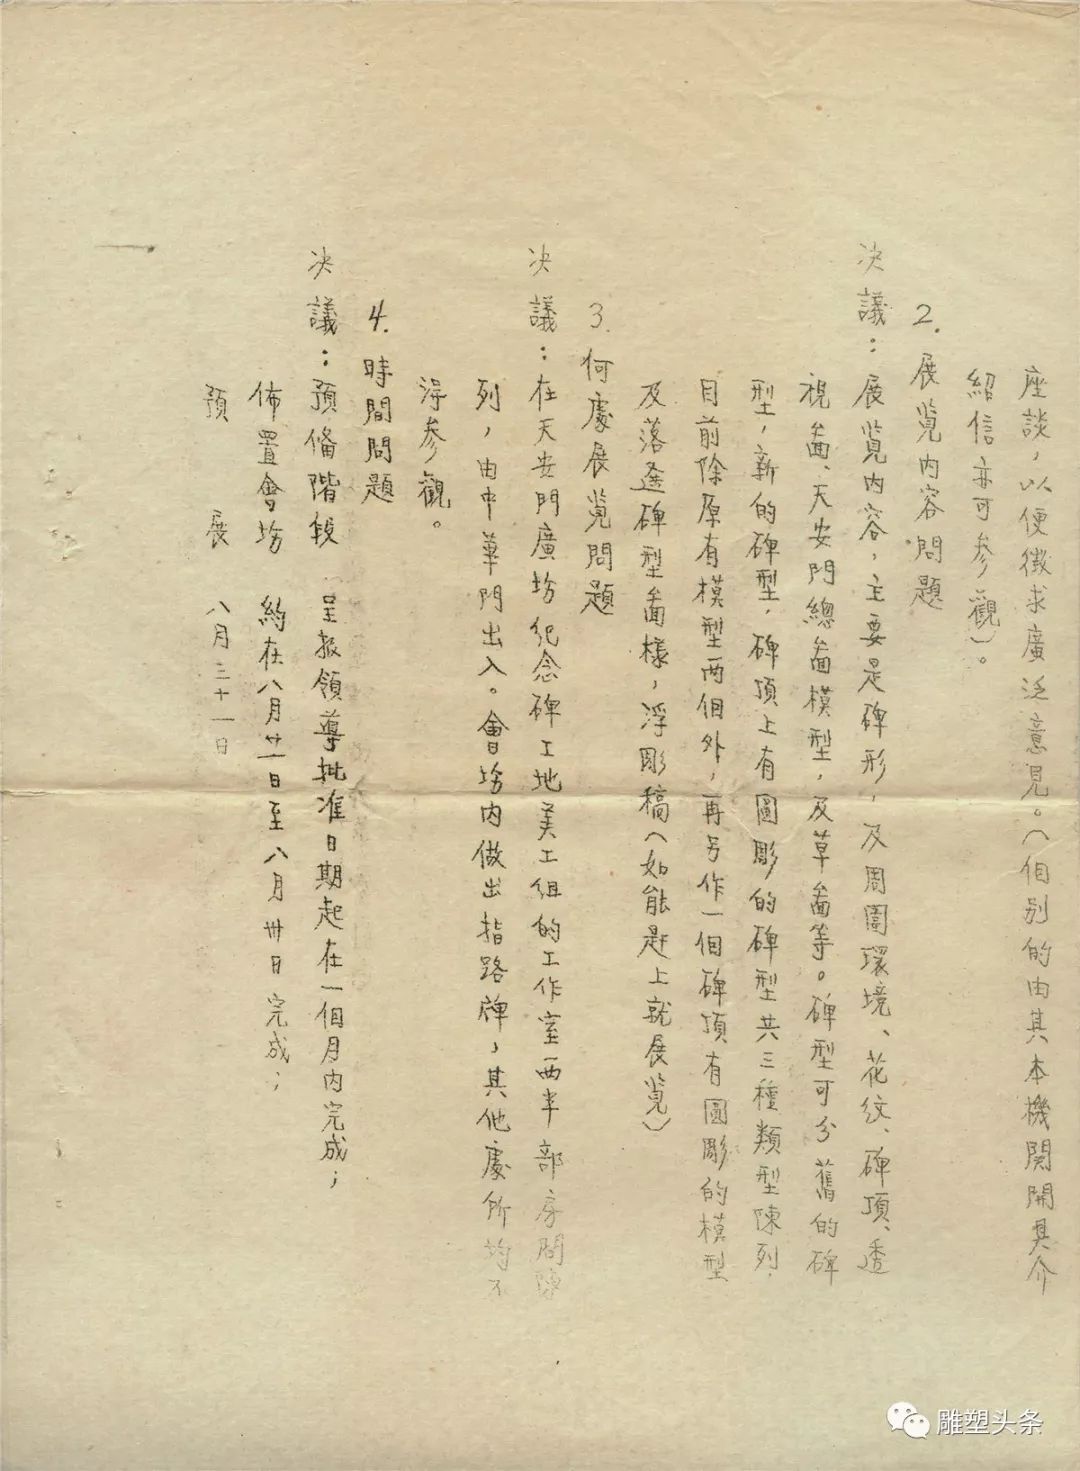 座談，以便徵求廣泛意見。（個别的由其本機関開具介
紹信亦可参觀）。
2. 展覧内容問題
决議：展覧内容，主要是碑形，及周圍環境、花紋、碑頂、透
視畵、天安門總畵模型，及草畵等。碑型可分舊的碑
型，新的碑型，碑頂上有圓彫的碑型共三種類型陳列，
目前除原有模型两個外，再另作一個碑頂有圓彫的模型
及落選碑型畵樣，浮彫稿（如能趕上就展覧）
3. 何處展覧問題
决議：在天安門廣場纪念碑工地美工組的工作室西半部房間陳
列，由中華門出入。會場内做出指路牌，其他處所均不
得参觀。
4. 時間問題
决議：預備階段 呈报領導批准日期起在一個月内完成；
佈置會場 約在八月廿一日至八月卅日完成；
預 展 八月三十一日
雕塑头条